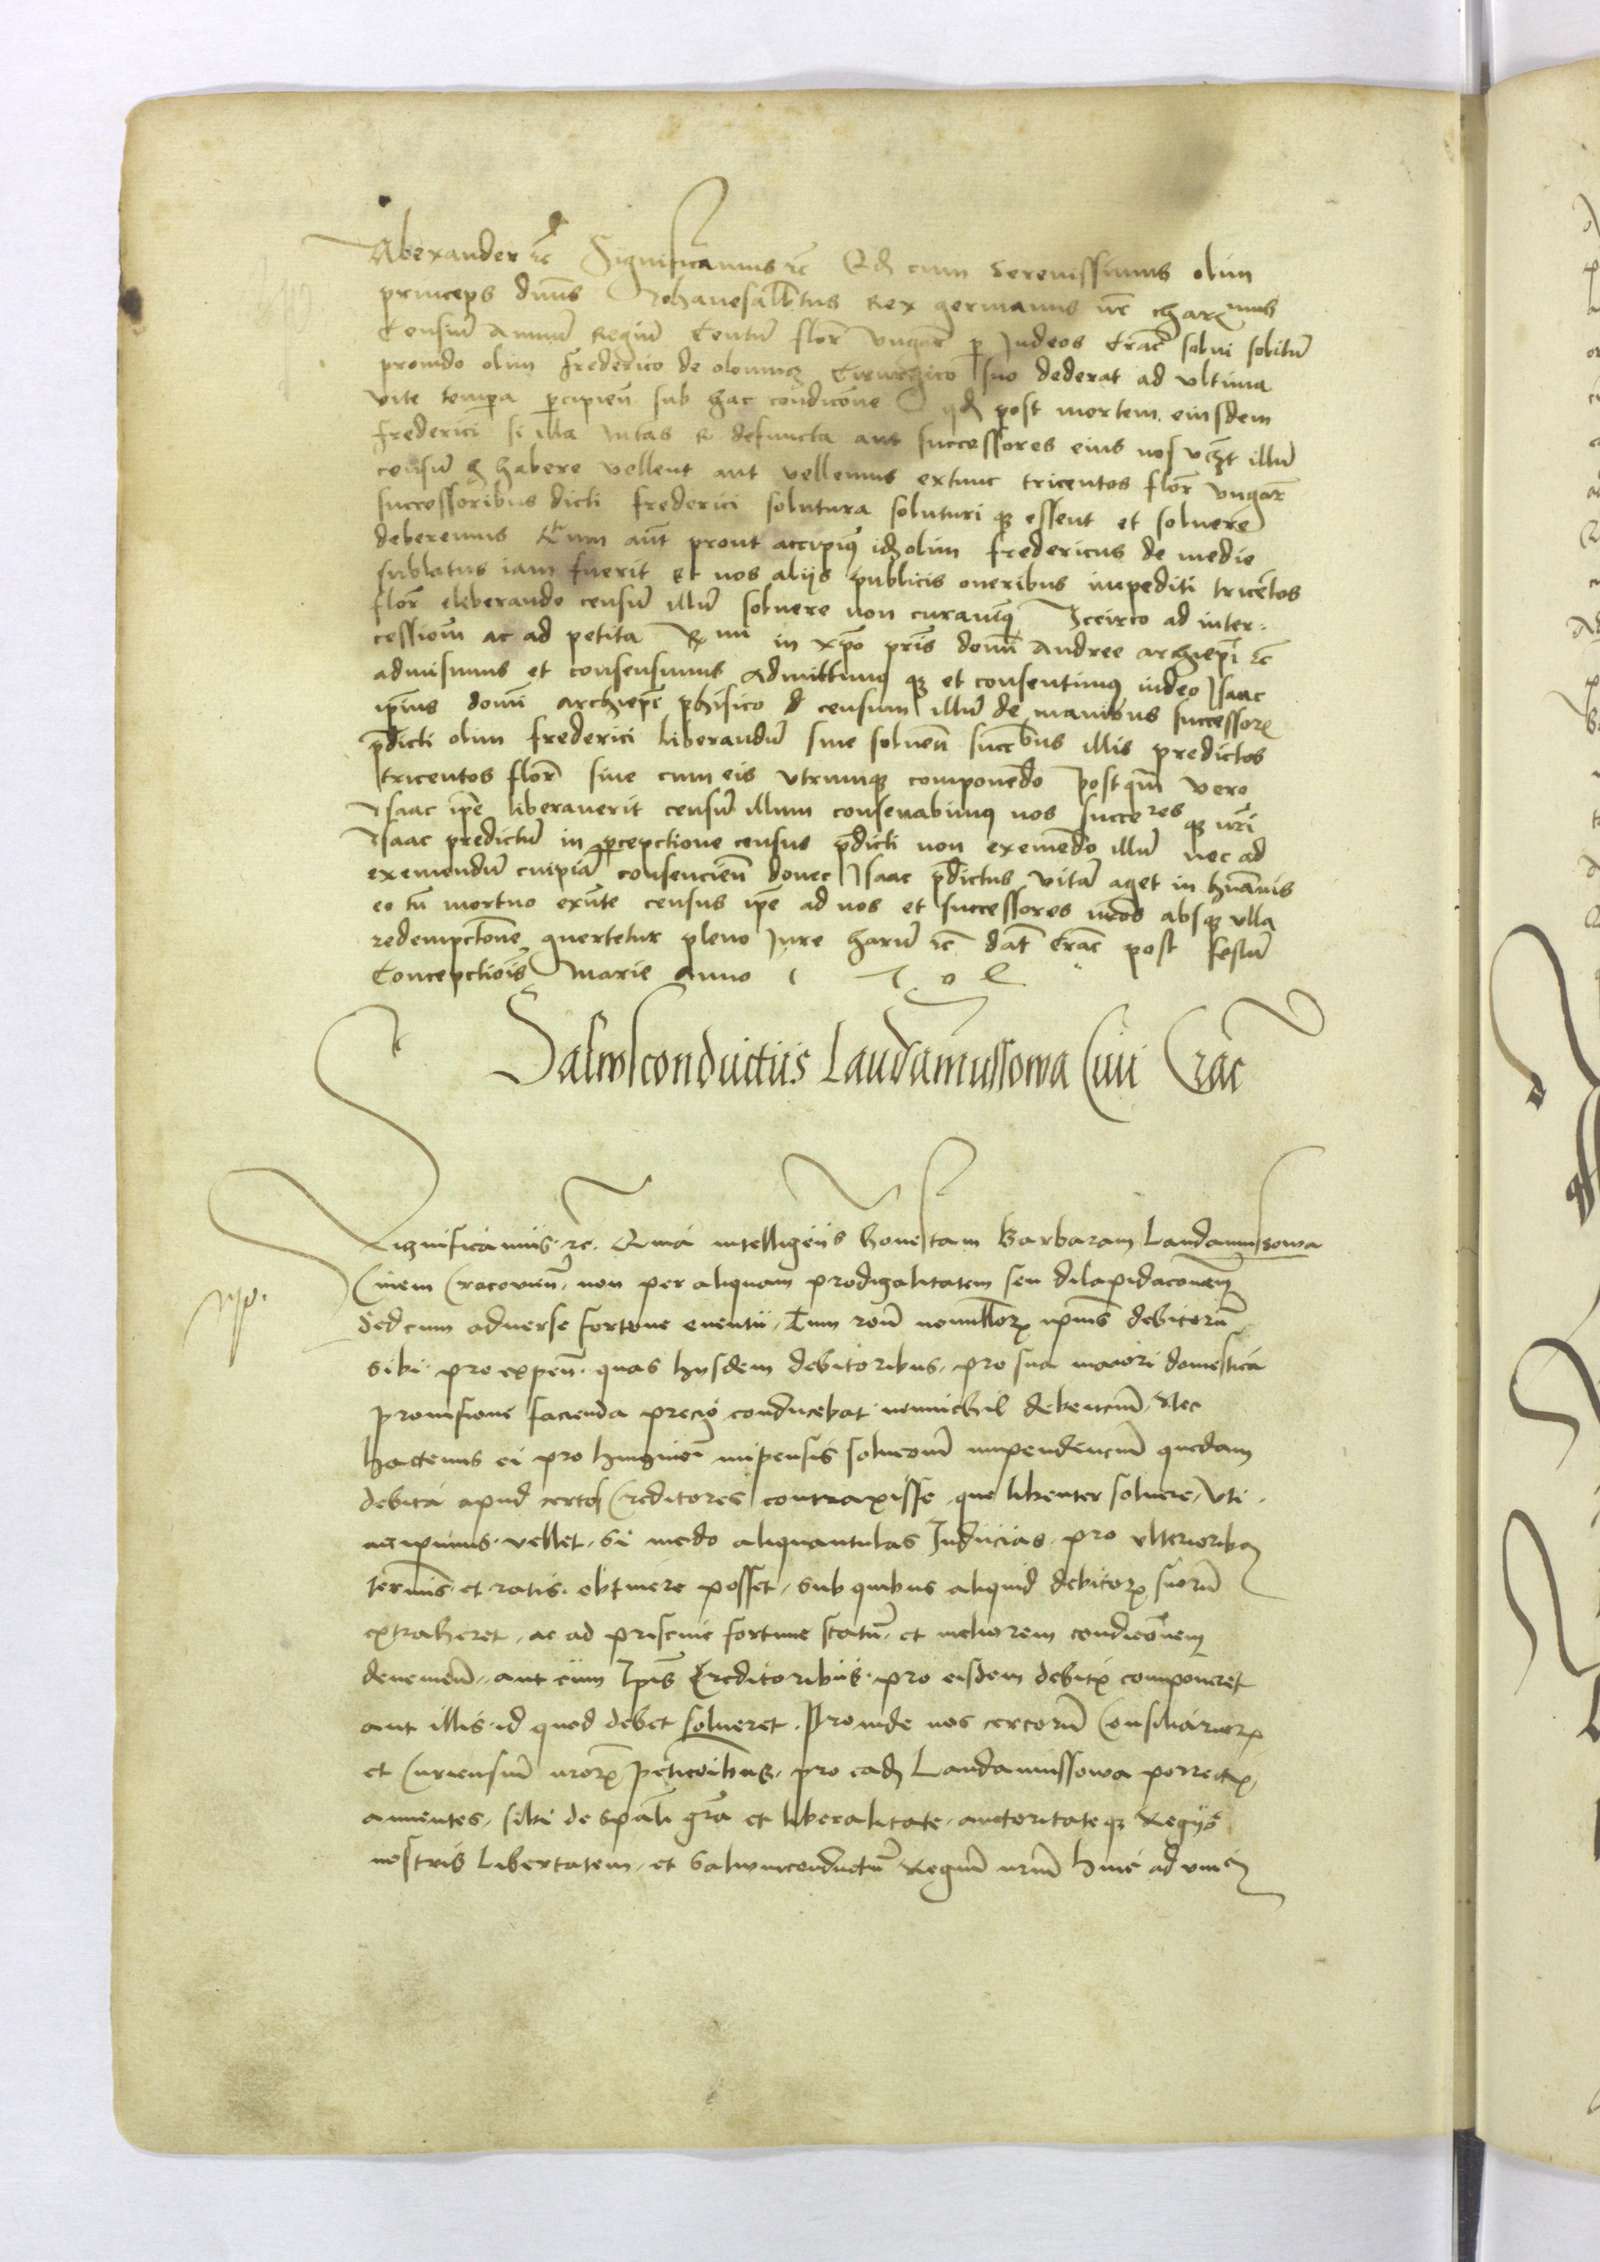 Alexander etc Significamus etc Qd cum Serenissimus olim
princeps dnus Johanesalbertus Rex germanus nr charmus
Censum Annuum Regium Centum flor ungar per Judeos Crac solui solitum
prouido olim frederico de olomucz Cirurgico suo dederat ad ultima
vite tempora percipien sub hac condicione qd post mortem eiusdem
frederici si illa defuncta aut successores eius nos illum
censum habere vellent aut vellemus extunc tricentos flor ungar
successoribus dicti frederici solutura soluturi que essent et soluere
deberemus Cum aut prout accipimus idem olim fredericus de medio
sublatus iam fuerit et nos aliis publicis oneribus impediti tricentos
flor eliberando censum illum soluere non curauimus Iccirco ad inter-
cessionem ac ad petita Rmi in xpo pris domini Andree archiepi etc
admisimus et consensimus Admittimus que et consentimus iudeo Isaac
ipsius domini archiepi phisico censum illum de manibus successorum
predicti olim frederici liberandum siue soluen succribus illis predictos
tricentos flor siue cum eis utrumque componendo postquam vero
Isaac ipse liberauerit censum illum conseruabimus nos succeres que nri
Isaac predictum in percepctione census predicti non exemendo illum nec ad
exemendum cuipiam consencien donec Isaac predictus vitam aget in humanis
eo tum mortuo census ipse ad nos et successores nros absque ulla
redempctione conuertetur pleno jure harum etc dat Crac post festum
Concepctionis Marie Anno
Saluusconductus Laudamussowa Ciui Crac
Significamus. etc. Quia intelligentes honestam Barbaram Landamussowa
Ciuem Cracouien, non per aliquam prodigalitatem seu dilapidaconem
Sed cum aduerse fortune euentu, Tum nonnullorum ipsius debitorum
sibi pro expen. quas hysdem debitoribus, pro sua maiori domestica
prouisione facienda precio conducebat nonnichil debencium, Nec
hactenus ei pro impensis impendencium quedam
debita apud certos Creditores contraxisse, que libenter soluere, uti.
accipimus. vellet, si modo aliquantulas Inducias pro ulterioribus
terminis et ratis. obtinere posset, sub quibus aliquid debitorum suorum
extraheret, ac ad pristine fortune statum, et meliorem condicionem
deueniens, aut cum Ipsis Creditoribus pro eisdem debitis componeret
aut illis id quod debet solueret. Proinde nos certorum Consiliariorum
et Curiensium nrorum peticionibus, pro eadem Landamussowa porrectis,
annuentes, sibi de spali gra et liberalitate, auctoritate que Regys
nostris Libertatem, et Saluumconductum Regium nrum hinc ad unum